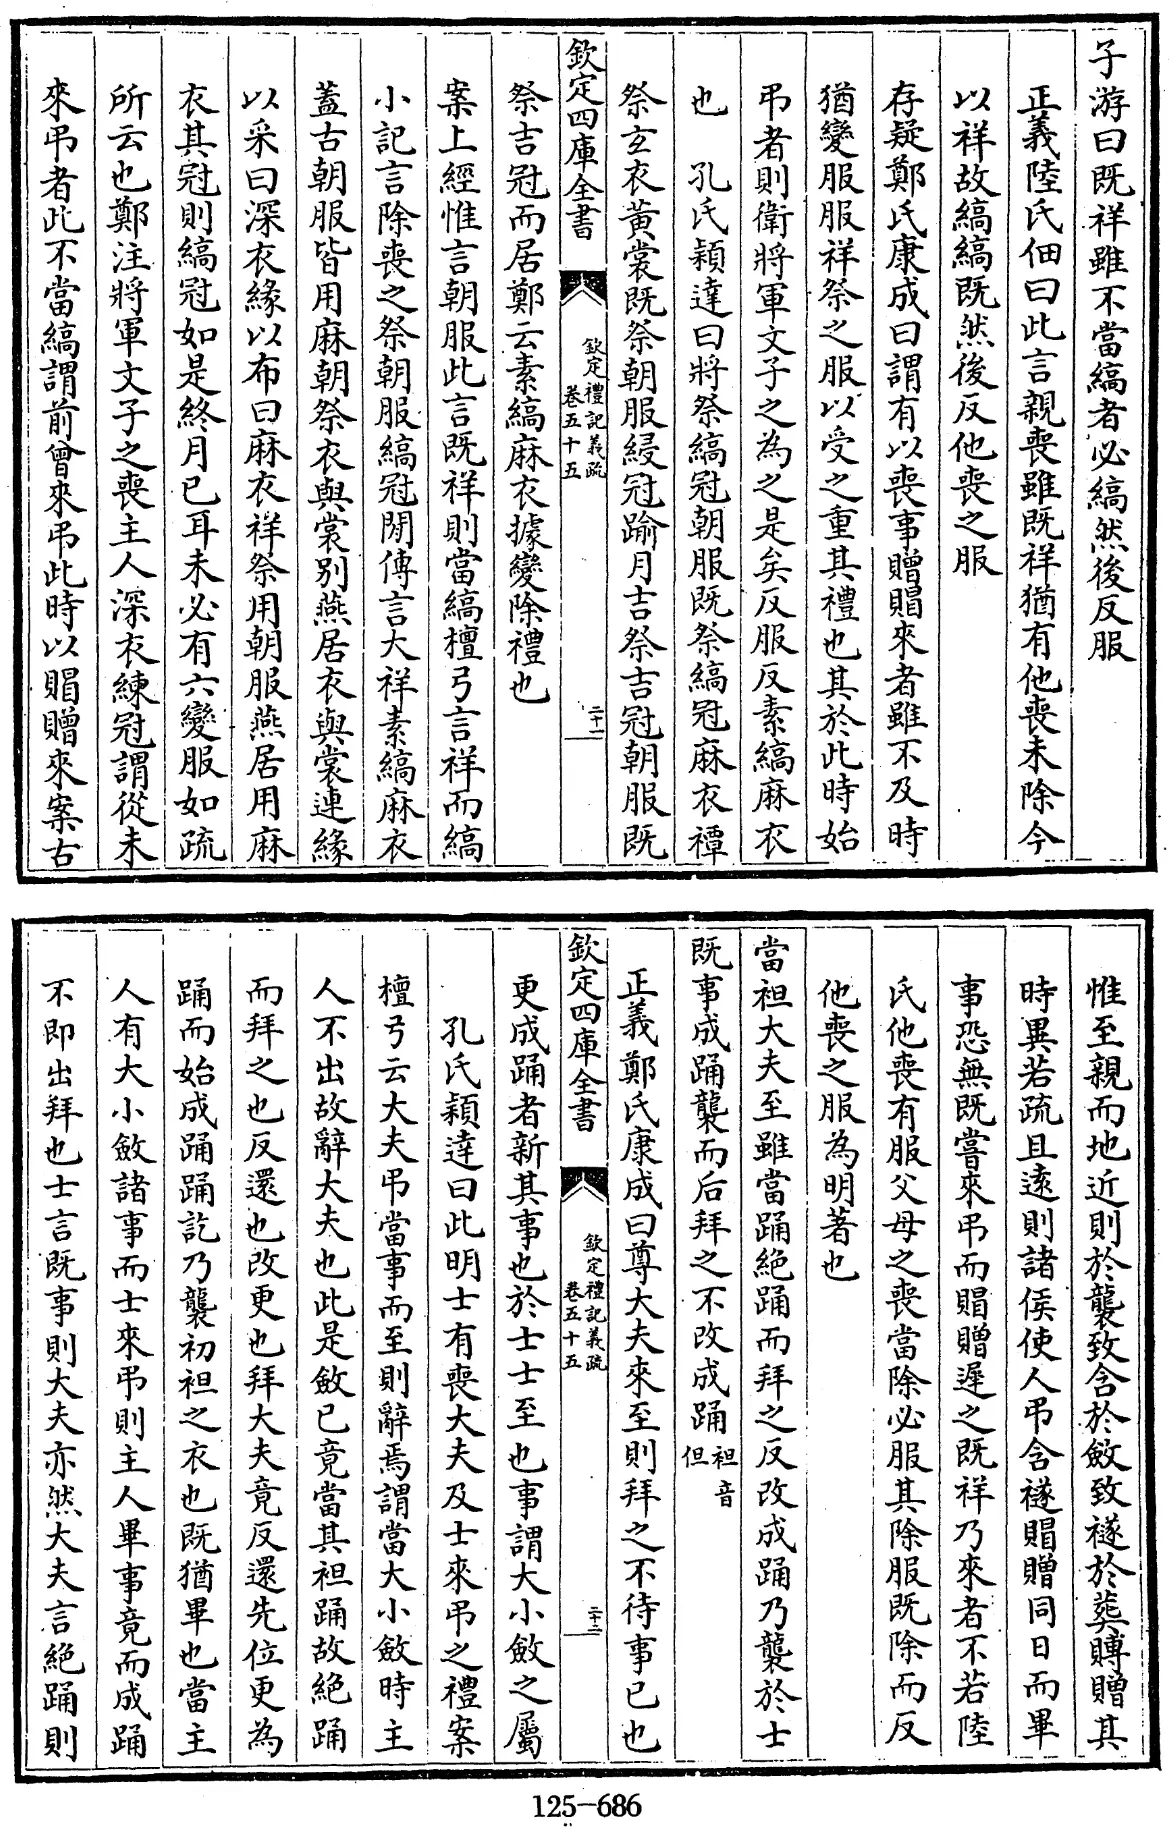 子游曰既祥雖不當縞者必縞然後反服
正義陸氏佃曰此言親喪雖既祥猶有他喪未除今
以祥故縞縞既然後反他喪之服
存疑鄭氏康成曰謂有以喪事贈賵來者雖不及時
猶變服服祥祭之服以受之重其禮也其於此時始
弔者則衛將軍文子之為之是矣反服反素縞麻衣
也　孔氏穎達曰將祭縞冠朝服既祭縞冠麻衣禫
祭玄衣黃裳既祭朝服綅冠踰月吉祭吉冠朝服既
欽定四庫全書
欽定禮記義疏
卷五十五
二十一
祭吉冠而居鄭云素縞麻衣據變除禮也
案上經惟言朝服此言既祥則當縞檀弓言祥而縞
小記言除喪之祭朝服縞冠閒傳言大祥素縞麻衣
蓋古朝服皆用麻朝祭衣與裳別燕居衣與裳連緣
以采曰深衣緣以布曰麻衣祥祭用朝服燕居用麻
衣其冠則縞冠如是終月已耳未必有六變服如疏
所云也鄭注將軍文子之喪主人深衣練冠謂從未
來弔者此不當縞謂前曾來弔此時以賵贈來案古
惟至親而地近則於襲致含於斂致襚於葬賻贈其
時異若疏且遠則諸侯使人弔含襚賵贈同日而畢
事恐無既嘗來弔而賵贈遲之既祥乃來者不若陸
氏他喪有服父母之喪當除必服其除服既除而反
他喪之服為明著也
當袒大夫至雖當踊絕踊而拜之反改成踊乃襲於士
既事成踊襲而后拜之不改成踊袒音但
正義鄭氏康成曰尊大夫來至則拜之不待事已也
欽定四庫全書
欽定禮記義疏
卷五十五
二十二
更成踊者新其事也於士士至也事謂大小斂之屬
孔氏穎達曰此明士有喪大夫及士來弔之禮案
檀弓云大夫弔當事而至則辭焉謂當大小斂時主
人不出故辭大夫也此是斂已竟當其袒踊故絕踊
而拜之也反還也改更也拜大夫竟反還先位更為
踊而始成踊踊訖乃襲初袒之衣也既猶畢也當主
人有大小斂諸事而士來弔則主人畢事竟而成踊
不即出拜也士言既事則大夫亦然大夫言絕踊則
125-686